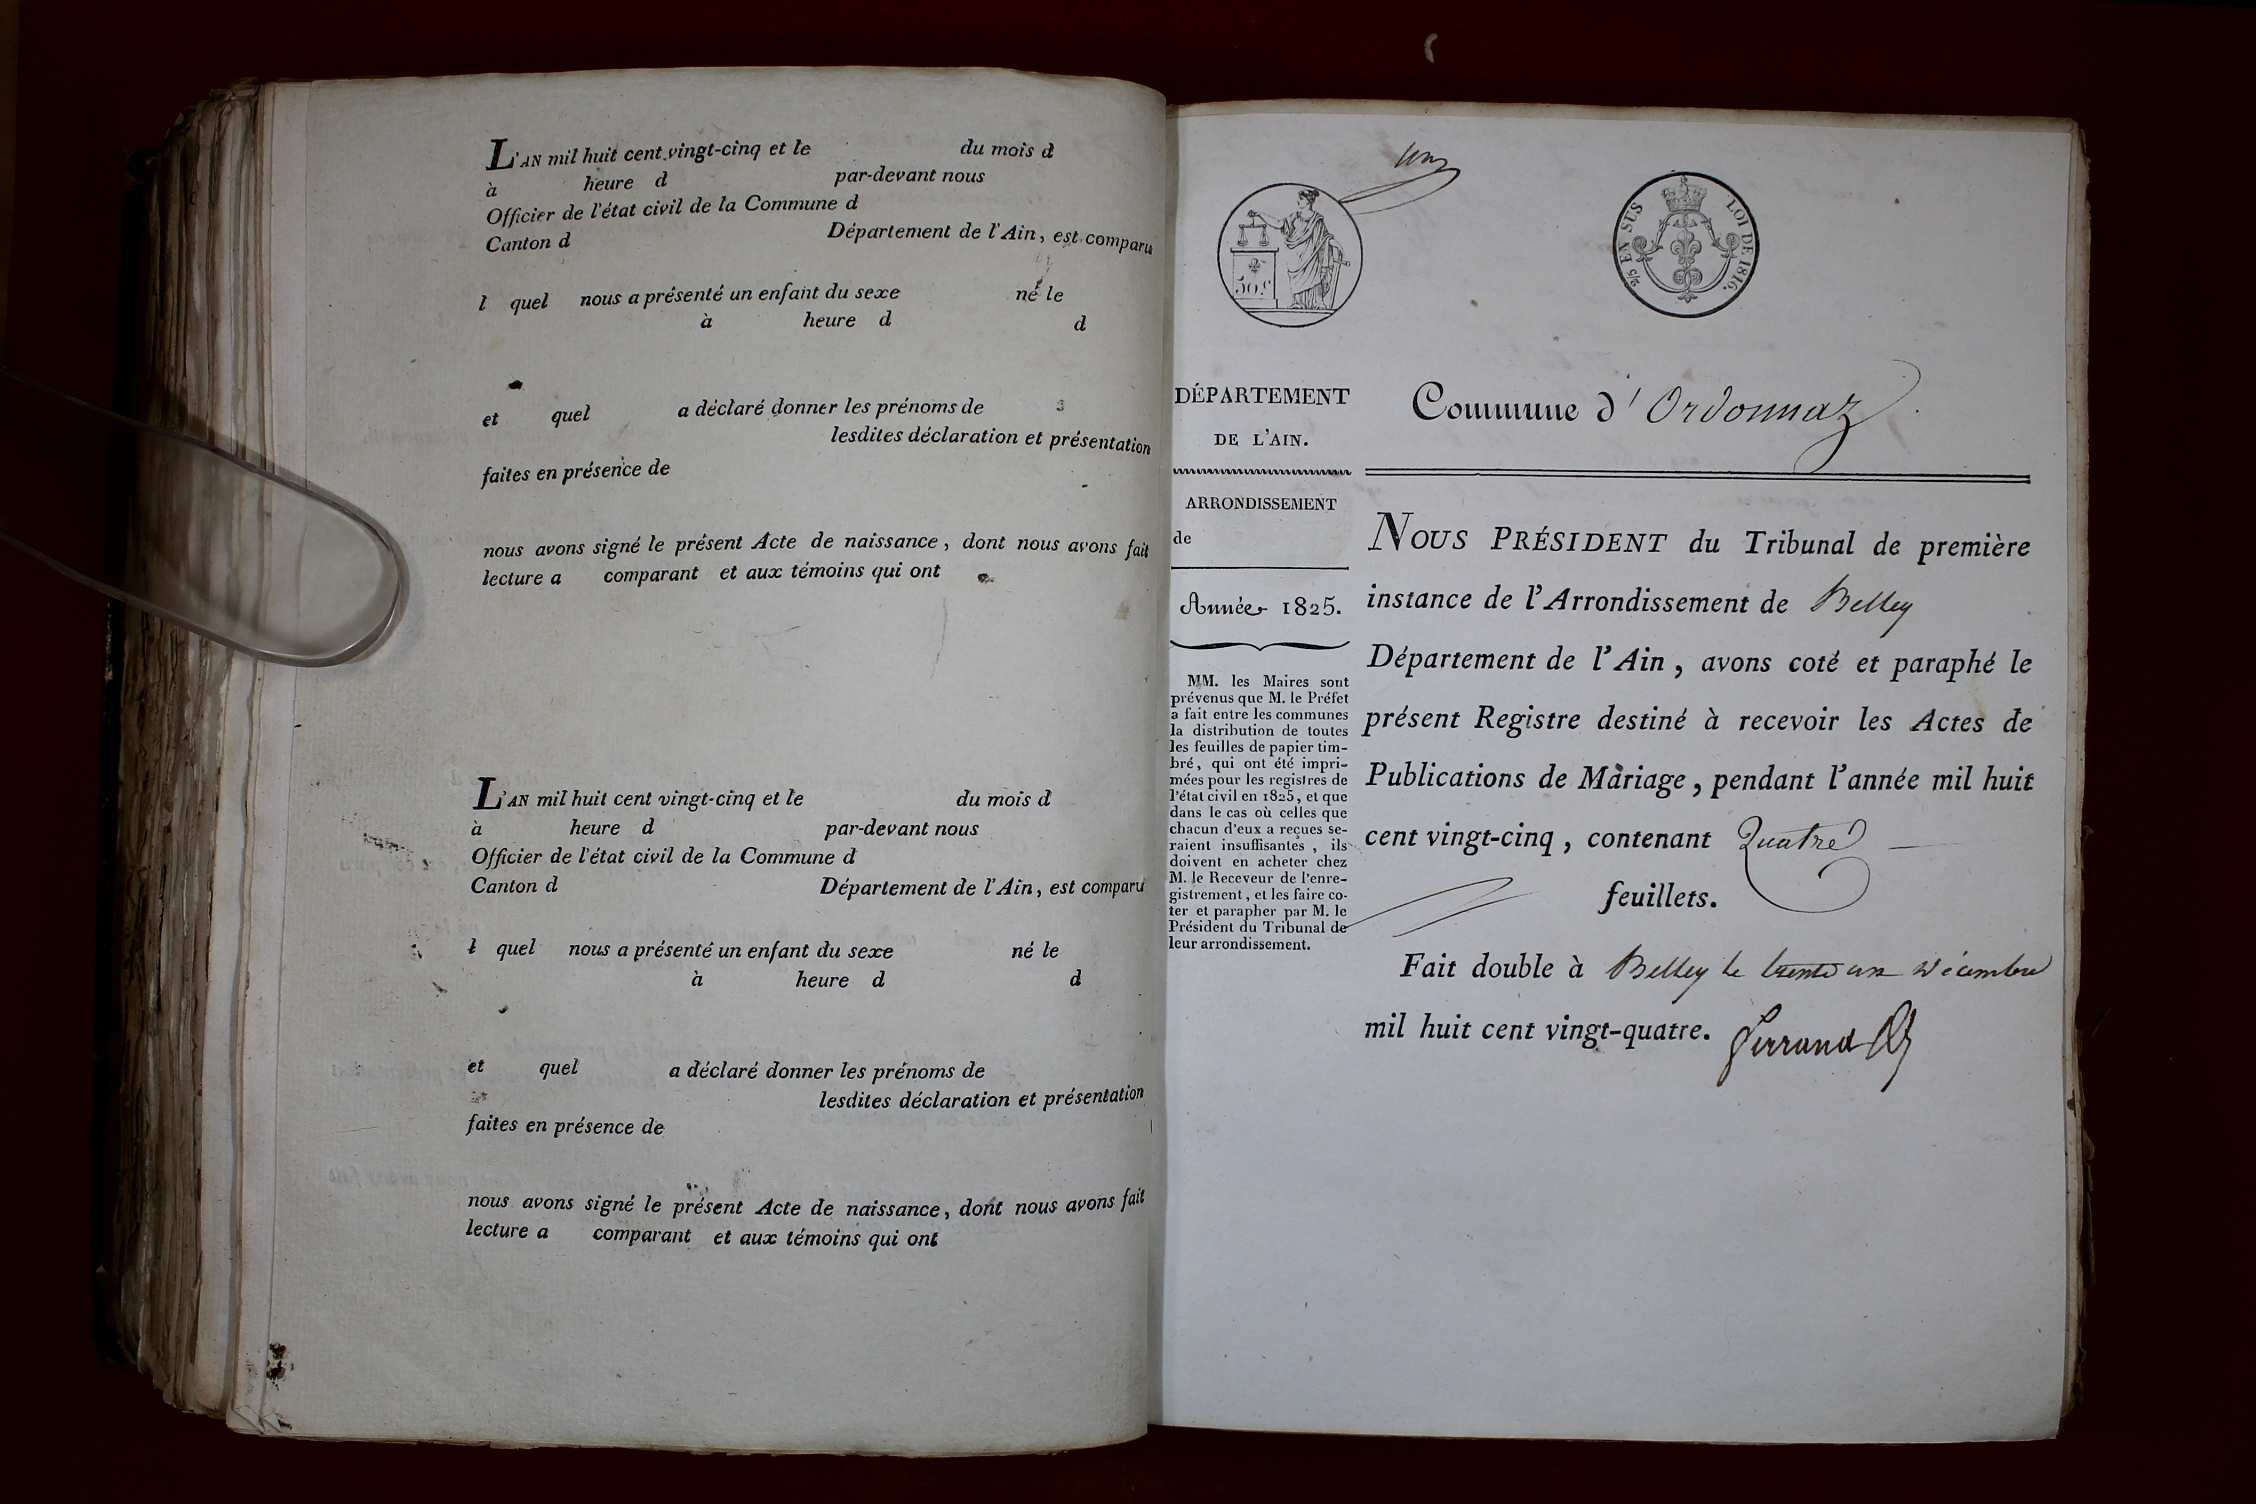 L'AN mil huit cent vingt-cinq et le du mois d
à heure d par-devant nous
Officier de l'état civil de la Commune d
Canton d Département de l'Ain, est comparu
l quel nous a présenté un enfant du sexe né le
à heure d d
et quel a déclaré donner les prénoms de
lesdites déclaration et présentation
faites en présence de
nous avons signé le présent Acte de naissance, dont nous avons fait
lecture a comparant et aux témoins qui ont
L'AN mil huit cent vingt-cinq et le du mois d
à heure d par-devant nous
Officier de l'état civil de la Commune d
Canton d Département de l'Ain, est comparu
l quel nous a présenté un enfant du sexe né le
à heure d d
et quel a déclaré donner les prénoms de
lesdites déclaration et présentation
faites en présence de
nous avons signé le présent Acte de naissance, dont nous avons fait
lecture a comparant et aux témoins qui ont
50 c.
2/5 EN SUS LOI DE 1816.
DÉPARTEMENT
DE L'AIN.
ARRONDISSEMENT
de
Année 1825.
MM. les Maires sont
prévenus que M. le Préfet
a fait entre les communes
la distribution de toutes
les feuilles de papier tim-
bré, qui ont été impri-
mées pour les registres de
l'état civil en 1825, et que
dans le cas où celles que
chacun d'eux a reçues se-
raient insuffisantes, ils
doivent en acheter chez
M. le Receveur de l'enre-
gistrement, et les faire co-
ter et parapher par M. le
Président du Tribunal de
leur arrondissement.
Commune d'Ordonnaz
NOUS PRÉSIDENT du Tribunal de première
instance de l'Arrondissement de Belley
Département de l'Ain, avons coté et paraphé le
présent Registre destiné à recevoir les Actes de
Publications de Mariage, pendant l'année mil huit
cent vingt-cinq, contenant Quatre
feuillets.
Fait double à Belley le trente un Décembre
mil huit cent vingt-quatre. Ferrand